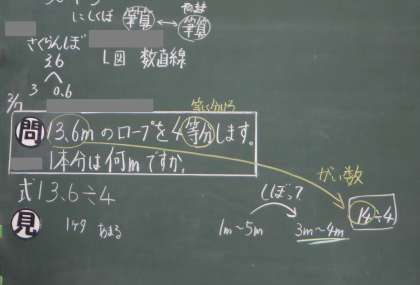 にしくぼ 筆算 ↔ 筆算
さくらんぼ
3.6
3 0.6
L図 数直線
等しく分ける
問 13.6mのロープを4等分します。
1本分は何mですか。
式 13.6÷4
がい数
しぼって
見
あまる
1m~5m 3m~4m 14÷4